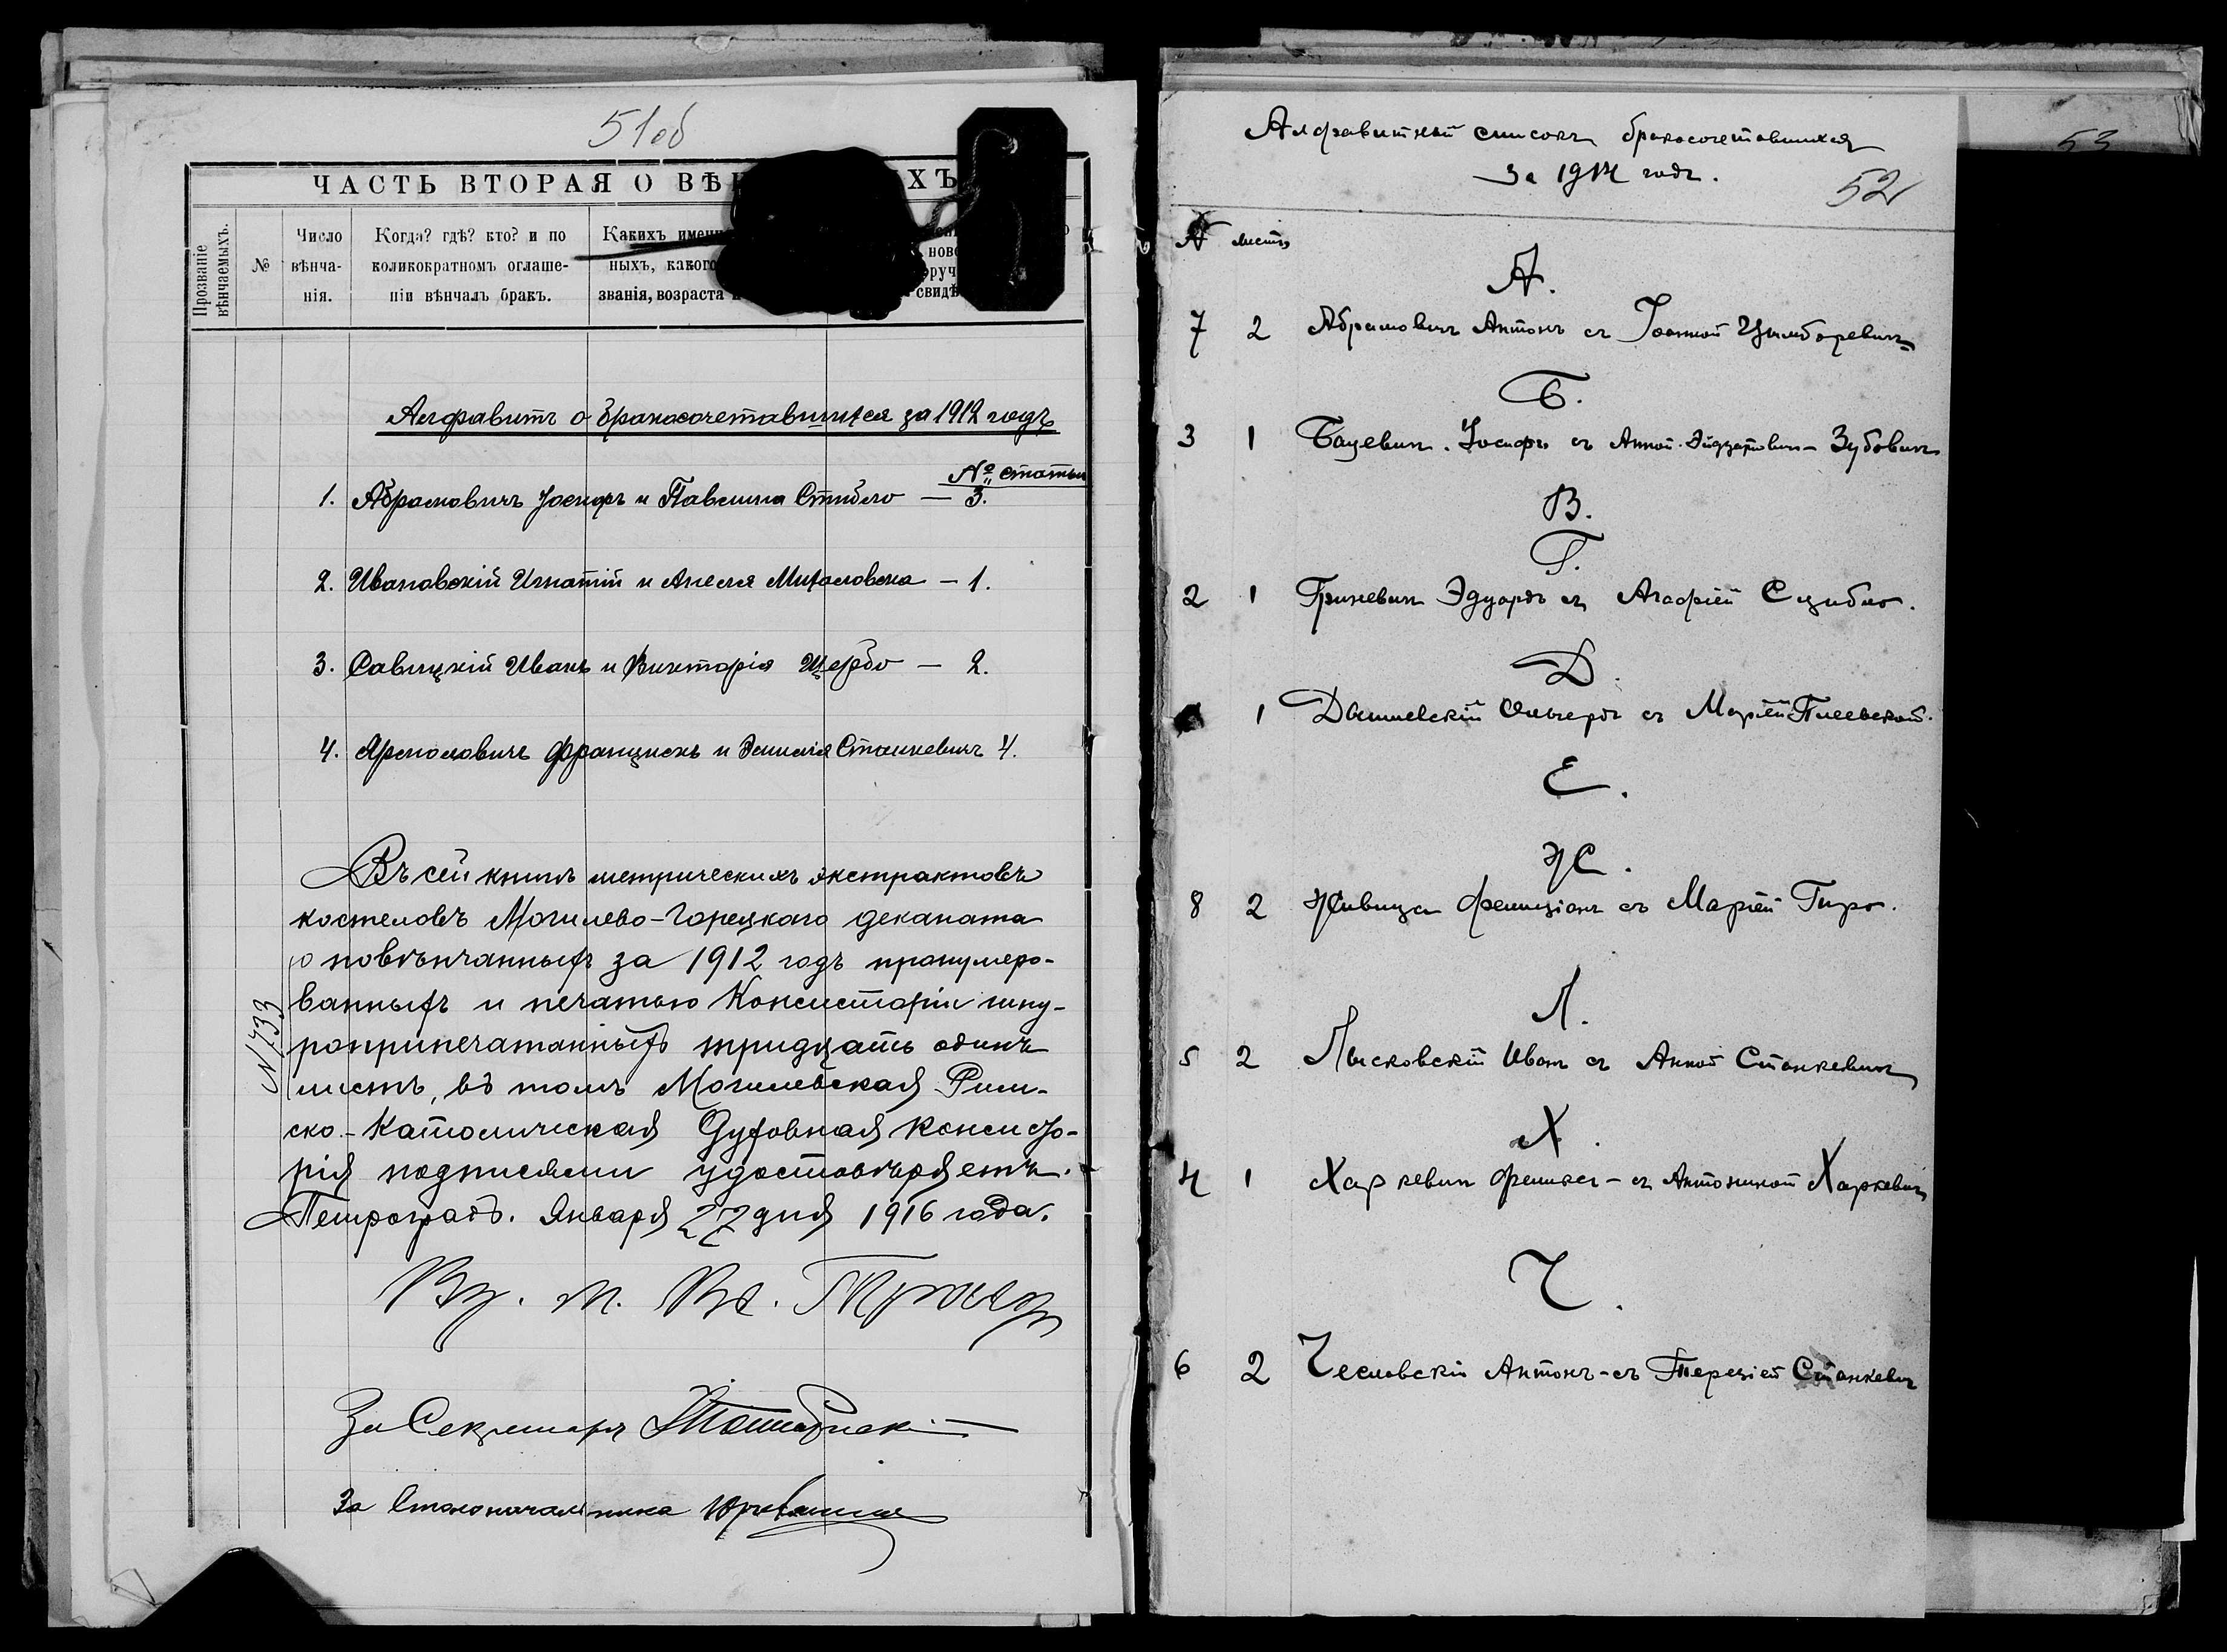 51об
ЧАСТЬ ВТОРАЯ О ВѢН ХЪ
Прозваніе вѣнчаемыхъ.
№
Число вѣнча-
нія.
Когда? гдѣ? кто? и по
коликократномъ оглаше-
ніи вѣнчалъ бракъ.
Каких имен
ныхъ, какого
званія, возраста
Алфавитъ о бракосочетавшихся за 1912 годъ
№ статьи
1. Абрамовичъ Іосифъ и Павлина Стибло — 3.
2. Ивановскій Игнатій и Анеля Михаловска — 1.
3. Савицкій Иванъ и Викторія Щербо — 2.
4. Ярмоловичъ Францискъ и Эмилія Станкевичъ 4.
Въ сей книгѣ метрическихъ экстрактовъ
костеловъ Могилево-Горецкаго деканата
о повѣнчанныхъ за 1912 годъ пронумеро-
ванныхъ и печатью Консисторіи шну-
роприпечатанныхъ тридцать одинъ
листъ, въ томъ Могилевская Рим-
ско-Католическая Духовная Консисто-
рія подписями удостовѣряетъ.
Петроградъ. Января 27 дня 1916 года.
№ 733
За Секретаря
За Столоначальника
Алфавитный списокъ бракосочетавшихся
за 1914 годъ.
52
53
№ листъ
А.
7 2 Абрамовичъ Антонъ съ Іоанной Цимборевичъ
Б.
3 1 Бацевичъ Іосифъ съ Анной Зубовичъ
В.
Г.
2 1 Гриневичъ Эдуардъ съ Агафіей Сцибло.
Д.
1 Дашневскій Ольгердъ съ Маріей
Е.
Ж.
8 2 Живица Фелиціанъ съ Маріей Гиро.
Л.
5 2 Лысковскій Иванъ съ Анной Станкевичъ
Х.
4 1 Харкевичъ Феликсъ - съ Антониной Харкевичъ
Ч.
6 2 Чесловскій Антонъ - съ Терезіей Станкевич